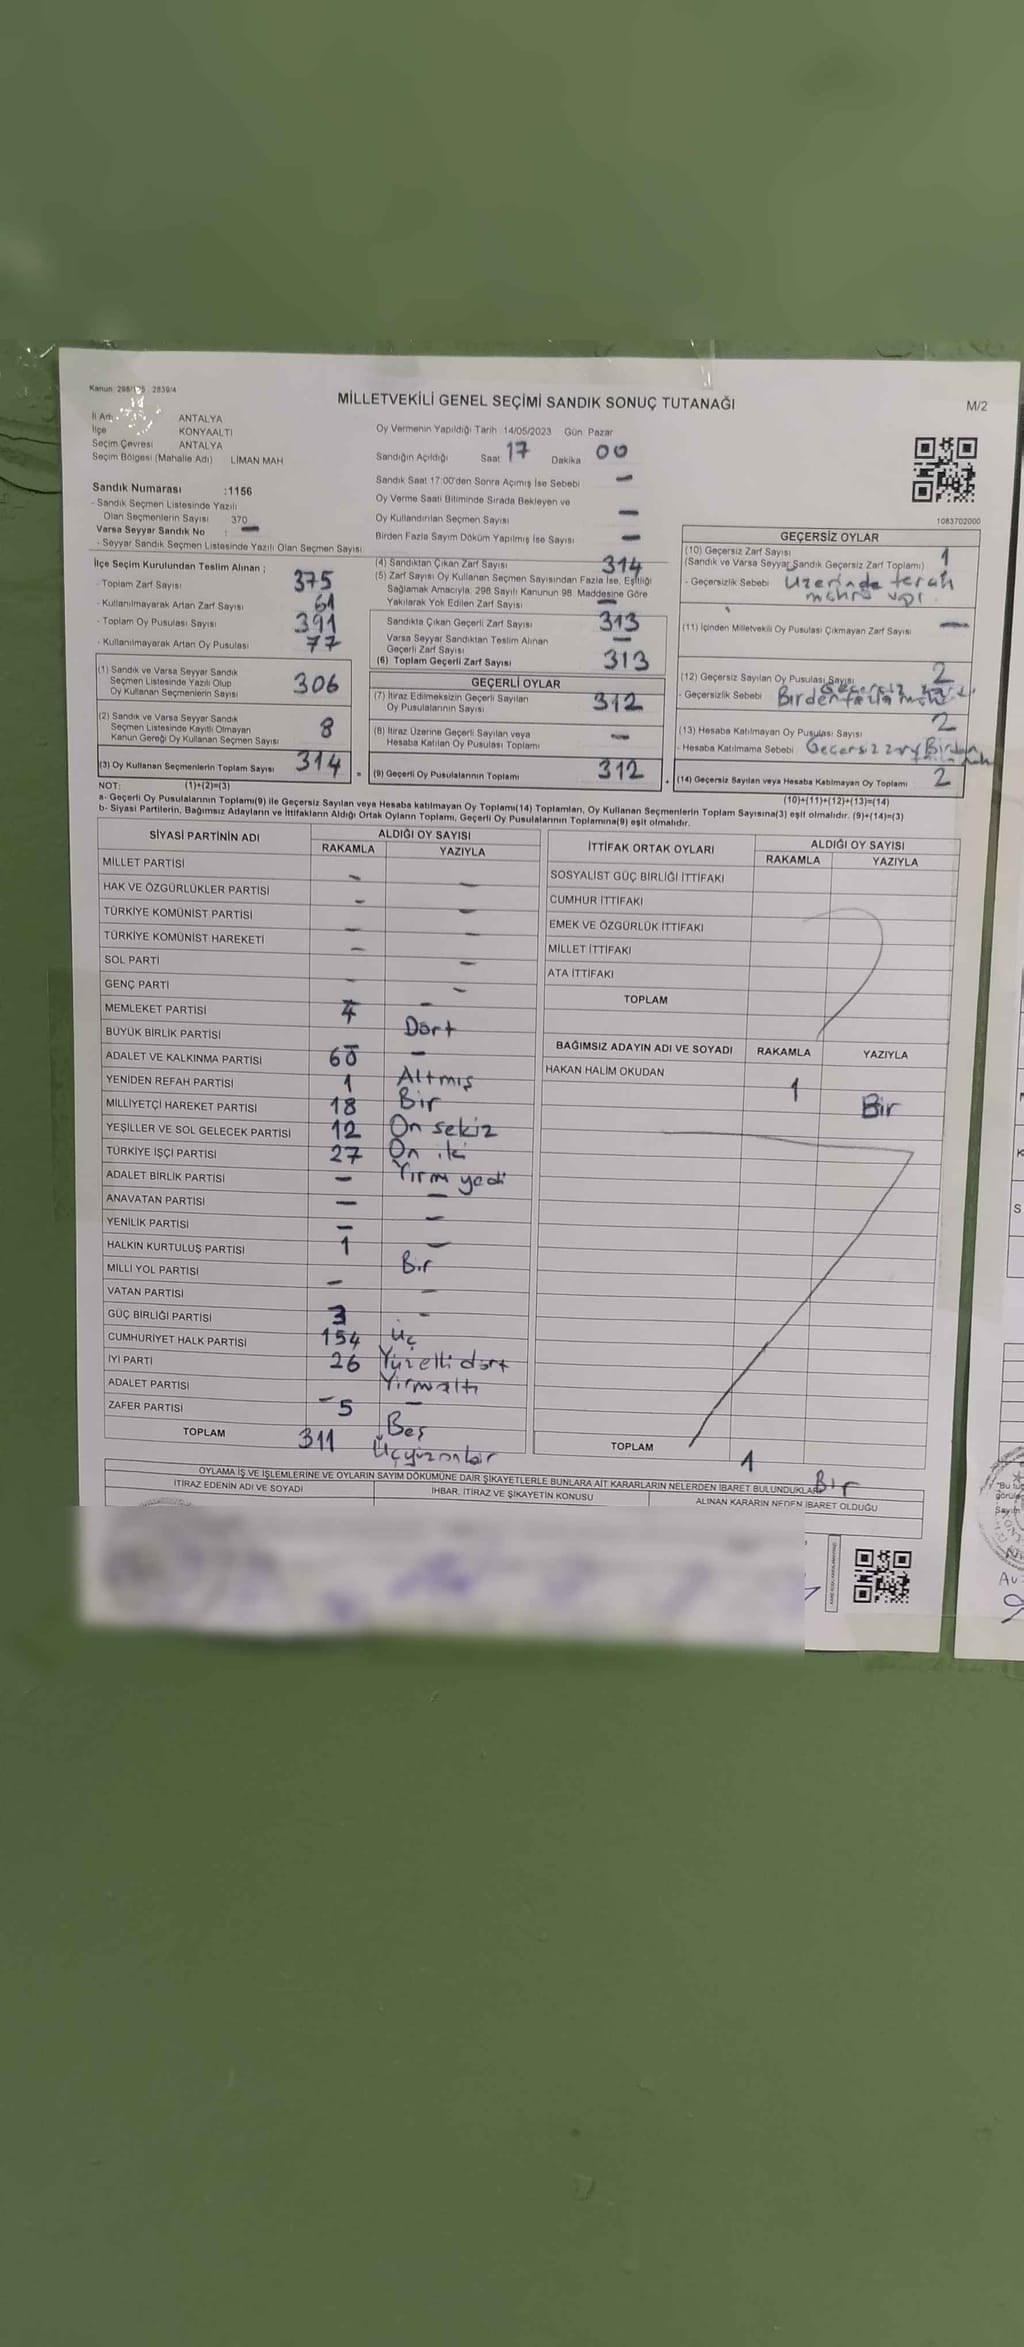 Kanun: 298/105 2839/4
MİLLETVEKİLİ GENEL SEÇİMİ SANDIK SONUÇ TUTANAĞI
M/2
İl Adı ANTALYA
İlçe KONYAALTI
Seçim Çevresi ANTALYA
Seçim Bölgesi (Mahalle Adı) LİMAN MAH
Sandık Numarası :1156
- Sandık Seçmen Listesinde Yazılı
Olan Seçmenlerin Sayısı 370
Varsa Seyyar Sandık No : —
- Seyyar Sandık Seçmen Listesinde Yazılı Olan Seçmen Sayısı
Oy Vermenin Yapıldığı Tarih :14/05/2023 Gün: Pazar
Sandığın Açıldığı Saat 17 Dakika 00
Sandık Saat 17:00'den Sonra Açımış İse Sebebi —
Oy Verme Saati Bitiminde Sırada Bekleyen ve
Oy Kullandırılan Seçmen Sayısı —
Birden Fazla Sayım Döküm Yapılmış İse Sayısı —
1083702000
İlçe Seçim Kurulundan Teslim Alınan ;
- Toplam Zarf Sayısı 375
- Kullanılmayarak Artan Zarf Sayısı 61
- Toplam Oy Pusulası Sayısı 391
- Kullanılmayarak Artan Oy Pusulası 77
(1) Sandık ve Varsa Seyyar Sandık
Seçmen Listesinde Yazılı Olup
Oy Kullanan Seçmenlerin Sayısı 306
(2) Sandık ve Varsa Seyyar Sandık
Seçmen Listesinde Kayıtlı Olmayan
Kanun Gereği Oy Kullanan Seçmen Sayısı 8
(3) Oy Kullanan Seçmenlerin Toplam Sayısı 314
(1)+(2)=(3)
(4) Sandıktan Çıkan Zarf Sayısı 314
(5) Zarf Sayısı Oy Kullanan Seçmen Sayısından Fazla İse, Eşitliği
Sağlamak Amacıyla, 298 Sayılı Kanunun 98. Maddesine Göre
Yakılarak Yok Edilen Zarf Sayısı —
Sandıkta Çıkan Geçerli Zarf Sayısı 313
Varsa Seyyar Sandıktan Teslim Alınan
Geçerli Zarf Sayısı —
(6) Toplam Geçerli Zarf Sayısı 313
GEÇERLİ OYLAR
(7) İtiraz Edilmeksizin Geçerli Sayılan
Oy Pusulalarının Sayısı 312
(8) İtiraz Üzerine Geçerli Sayılan veya
Hesaba Katılan Oy Pusulası Toplamı —
(9) Geçerli Oy Pusulalarının Toplamı 312
GEÇERSİZ OYLAR
(10) Geçersiz Zarf Sayısı 1
(Sandık ve Varsa Seyyar Sandık Geçersiz Zarf Toplamı)
- Geçersizlik Sebebi Üzerinde
(11) İçinden Milletvekili Oy Pusulası Çıkmayan Zarf Sayısı —
(12) Geçersiz Sayılan Oy Pusulası Sayısı 2
- Geçersizlik Sebebi Birden fazla
(13) Hesaba Katılmayan Oy Pusulası Sayısı 2
- Hesaba Katılmama Sebebi Geçersiz zarf Birden
(14) Geçersiz Sayılan veya Hesaba Katılmayan Oy Toplamı 2
(10)+(11)+(12)+(13)=(14)
NOT:
a- Geçerli Oy Pusulalarının Toplamı(9) ile Geçersiz Sayılan veya Hesaba katılmayan Oy Toplamı(14) Toplamları, Oy Kullanan Seçmenlerin Toplam Sayısına(3) eşit olmalıdır. (9)+(14)=(3)
b- Siyasi Partilerin, Bağımsız Adayların ve İttifakların Aldığı Ortak Oyların Toplamı, Geçerli Oy Pusulalarının Toplamına(9) eşit olmalıdır.
SİYASİ PARTİNİN ADI ALDIĞI OY SAYISI
RAKAMLA YAZIYLA
MİLLET PARTİSİ — —
HAK VE ÖZGÜRLÜKLER PARTİSİ — —
TÜRKİYE KOMÜNİST PARTİSİ — —
TÜRKİYE KOMÜNİST HAREKETİ — —
SOL PARTİ — —
GENÇ PARTİ — —
MEMLEKET PARTİSİ 4 Dört
BÜYÜK BİRLİK PARTİSİ — —
ADALET VE KALKINMA PARTİSİ 60 Altmış
YENİDEN REFAH PARTİSİ 1 Bir
MİLLİYETÇİ HAREKET PARTİSİ 18 On sekiz
YEŞİLLER VE SOL GELECEK PARTİSİ 12 On iki
TÜRKİYE İŞÇİ PARTİSİ 27 Yirmi yedi
ADALET BİRLİK PARTİSİ — —
ANAVATAN PARTİSİ — —
YENİLİK PARTİSİ — —
HALKIN KURTULUŞ PARTİSİ 1 Bir
MİLLİ YOL PARTİSİ
VATAN PARTİSİ — —
GÜÇ BİRLİĞİ PARTİSİ 3 Üç
CUMHURİYET HALK PARTİSİ 154 Yüzelli dört
İYİ PARTİ 26 Yirmialtı
ADALET PARTİSİ — —
ZAFER PARTİSİ 5 Beş
TOPLAM 311 Üçyüzonbir
İTTİFAK ORTAK OYLARI ALDIĞI OY SAYISI
RAKAMLA YAZIYLA
SOSYALİST GÜÇ BİRLİĞİ İTTİFAKI
CUMHUR İTTİFAKI
EMEK VE ÖZGÜRLÜK İTTİFAKI
MİLLET İTTİFAKI
ATA İTTİFAKI
TOPLAM
BAĞIMSIZ ADAYIN ADI VE SOYADI RAKAMLA YAZIYLA
HAKAN HALİM OKUDAN 1 Bir
TOPLAM 1 Bir
OYLAMA İŞ VE İŞLEMLERİNE VE OYLARIN SAYIM DÖKÜMÜNE DAİR ŞİKAYETLERLE BUNLARA AİT KARARLARIN NELERDEN İBARET BULUNDUKLARI
İTİRAZ EDENİN ADI VE SOYADI İHBAR, İTİRAZ VE ŞİKAYETİN KONUSU ALINAN KARARIN NEDEN İBARET OLDUĞU